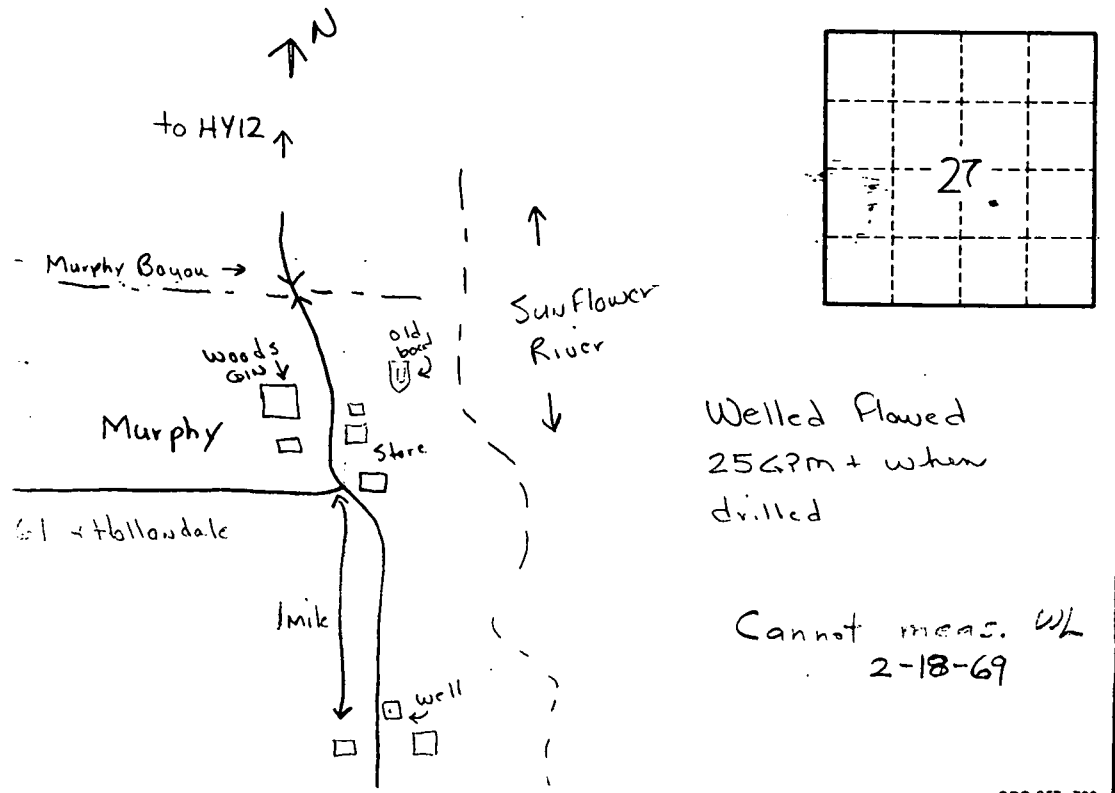 N
to HY12
Murphy Bayou →
Sunflower
River
old
boat
Woods
GIN
Murphy
Store
61 + Hollondale
1 mile
Well
27
Welled Flowed
25 GPM + when
drilled
Cannot meas. WL
2-18-69